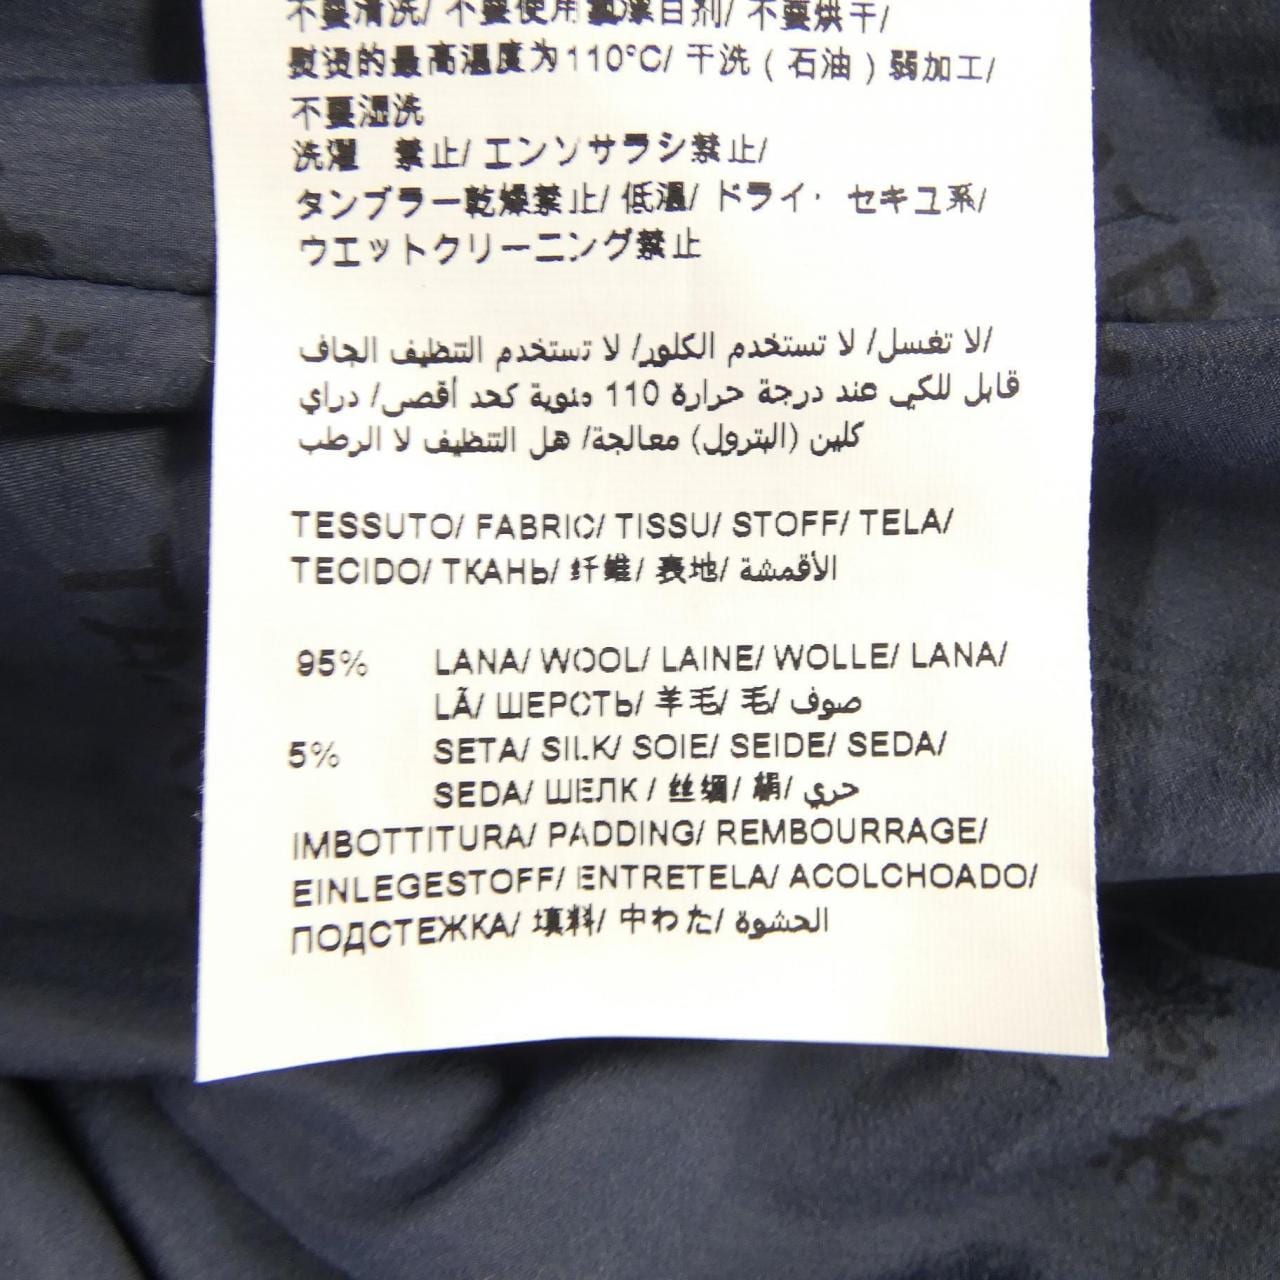 不要清洗/ 不要使用氯漂白剂/ 不要烘干/
熨烫的最高温度为110°C/ 干洗 ( 石油 ) 弱加工/
不要湿洗
洗濯 禁止/ エンソサラシ禁止/
タンブラー乾燥禁止/ 低温/ ドライ· セキユ系/
ウエットクリーニング禁止
لا تغسل/ لا تستخدم الكلور/ لا تستخدم التنظيف الجاف/
قابل للكي عند درجة حرارة 110 مئوية كحد أقصى/ دراي
كلين (البترول) معالجة/ هل التنظيف لا الرطب
TESSUTO/ FABRIC/ TISSU/ STOFF/ TELA/
TECIDO/ ТКАНЬ/ 纤维/ 表地/ الأقمشة
95% LANA/ WOOL/ LAINE/ WOLLE/ LANA/
LÃ/ ШЕРСТЬ/ 羊毛/ 毛/ صوف
5% SETA/ SILK/ SOIE/ SEIDE/ SEDA/
SEDA/ ШЕЛК / 丝绸/ 絹/ حري
IMBOTTITURA/ PADDING/ REMBOURRAGE/
EINLEGESTOFF/ ENTRETELA/ ACOLCHOADO/
ПОДСТЕЖКА/ 填料/ 中わた/ الحشوة